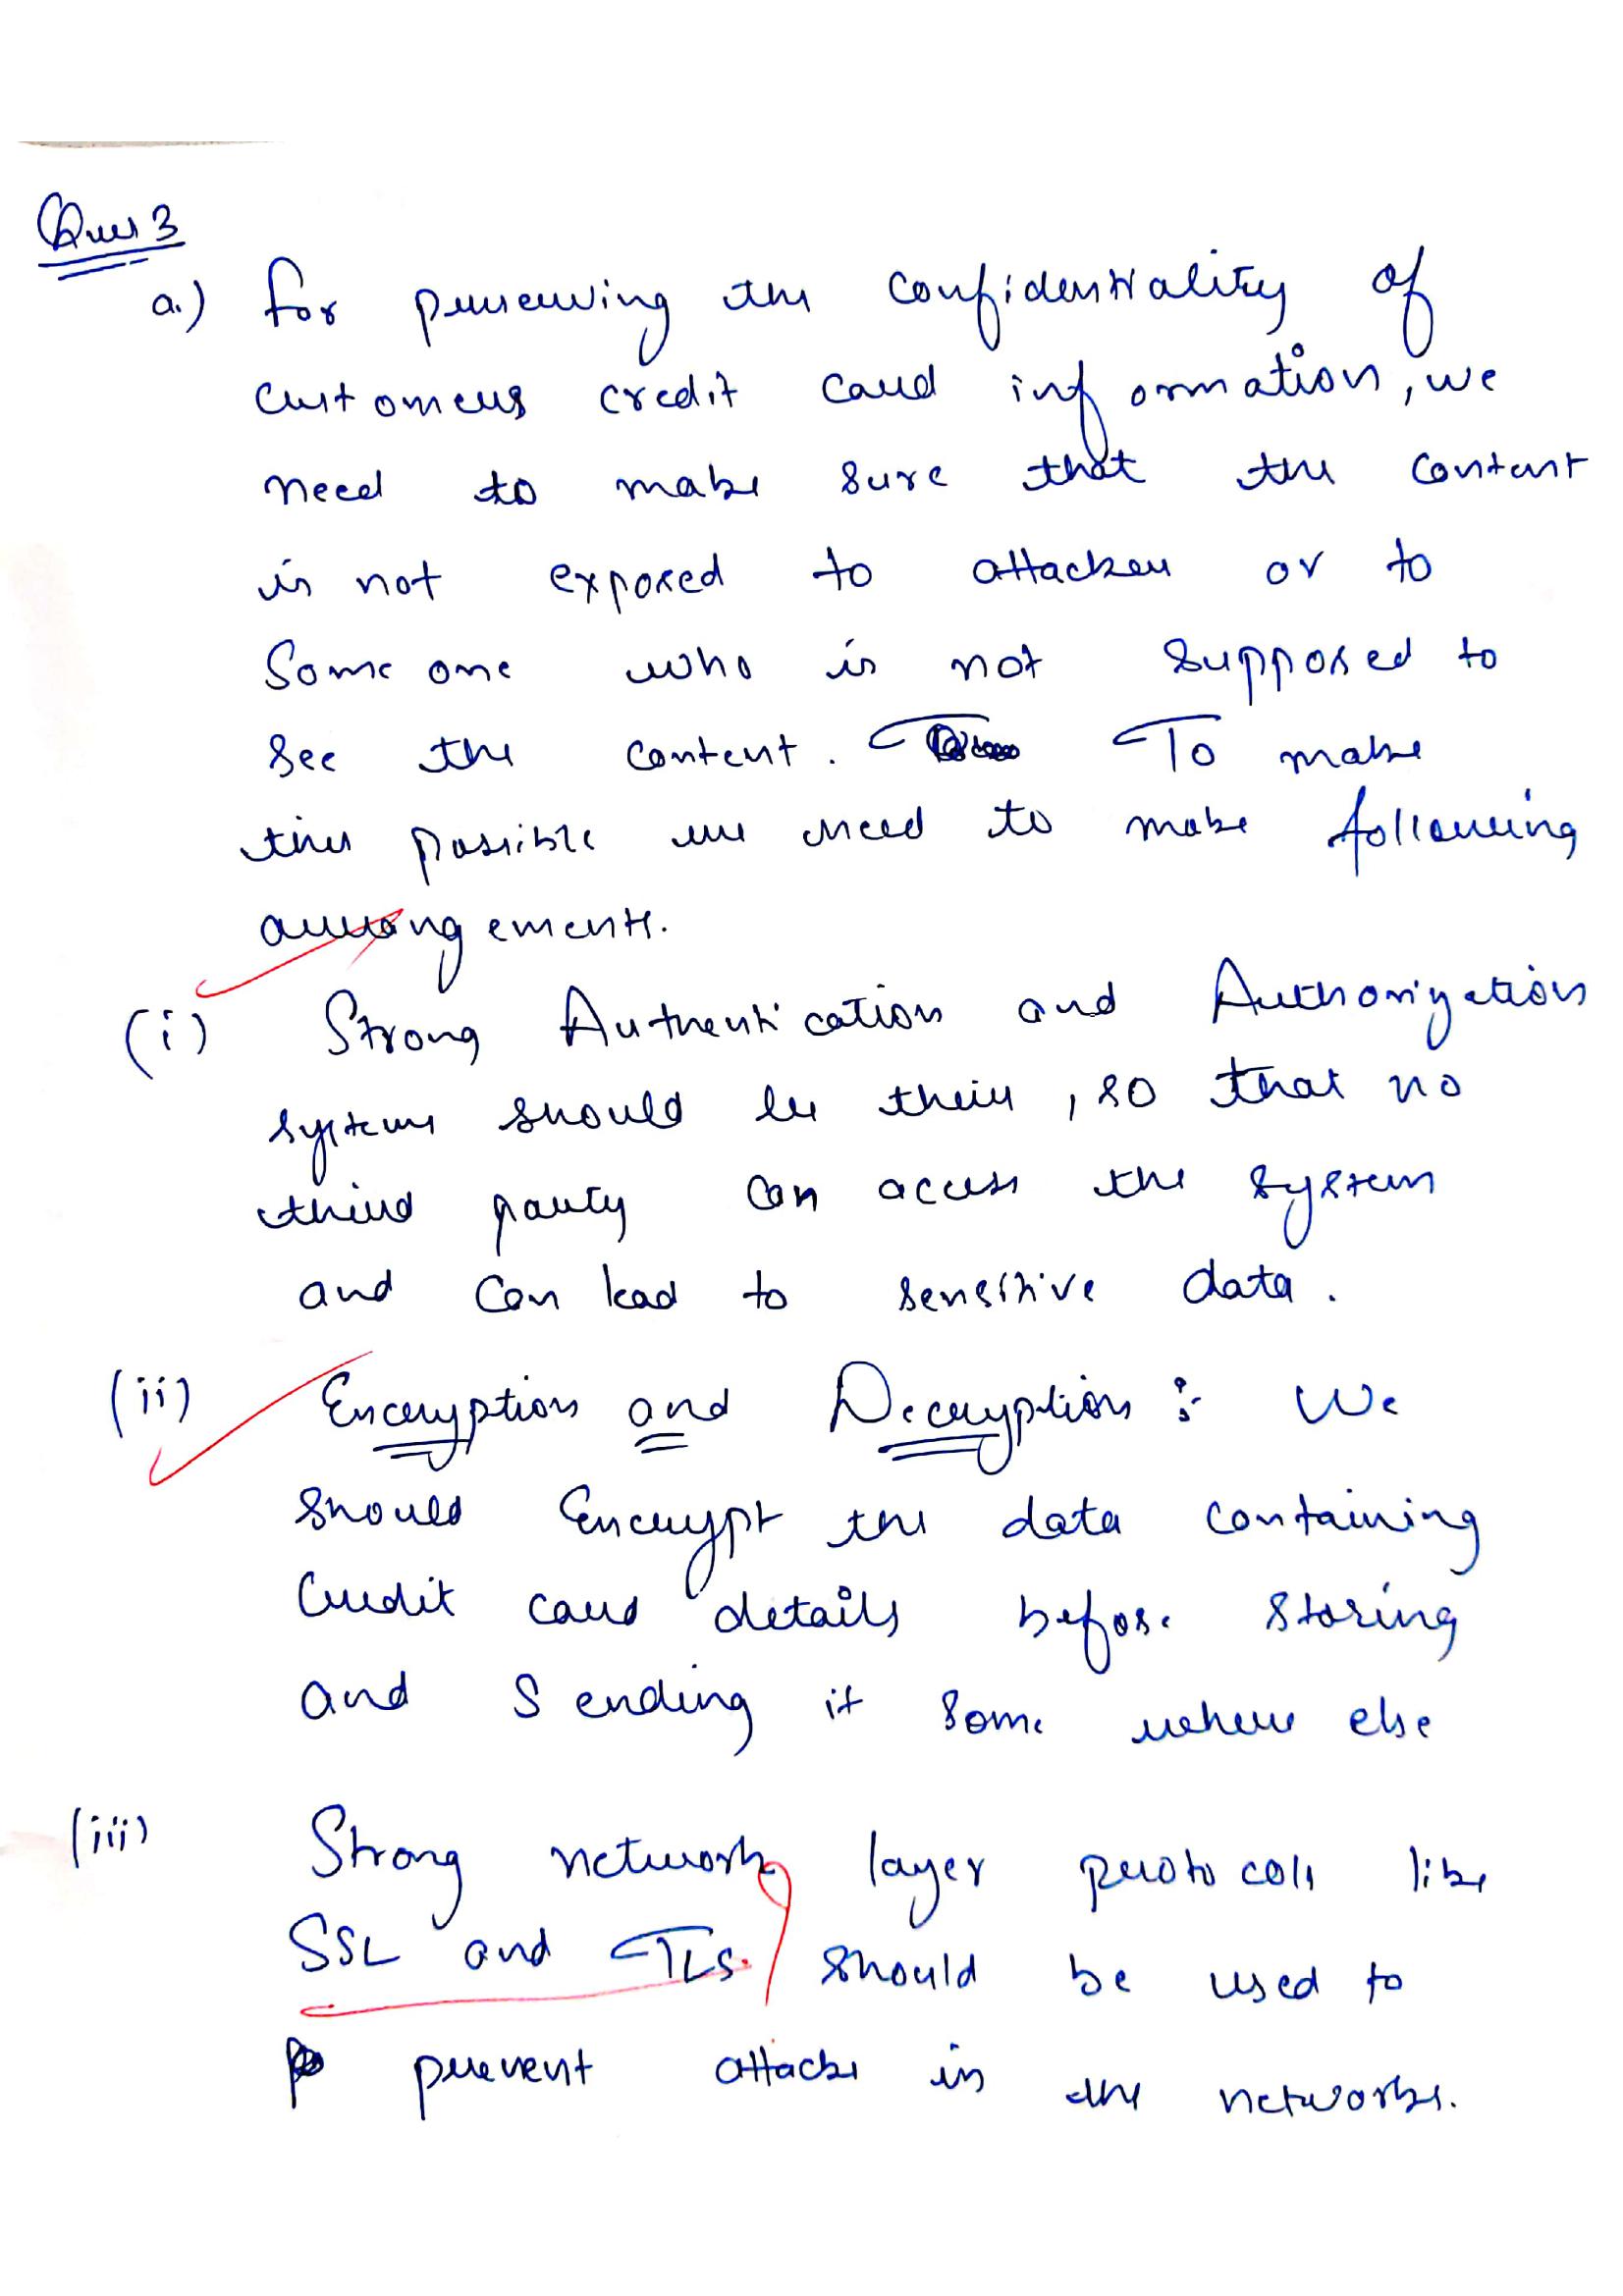 Ques 3
a.) for preserving the confidentiality of
customers credit card information, we
need to make sure that the content
is not exposed to attacker or to
Some one who is not supposed to
see the content. To make
this possible we need to make following
arrangements.
(i) Strong Authentication and Authorization
systems should be their, so that no
third party can access the system
and can lead to sensitive data.
(ii) Encryption and Decryption :- We
should Encrypt the data containing
Credit card details before storing
and Sending it some where else
(iii) Strong network layer protocols like
SSL and TLS. should be used to
prevent attacks in the networks.